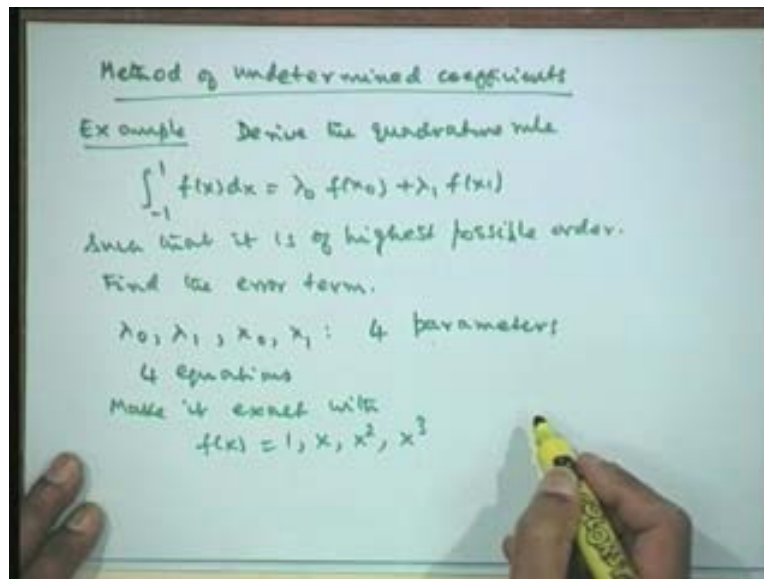 Method of undetermined coefficients
Example Derive the quadrature rule
∫₋₁¹ f(x)dx = λ₀ f(x₀) + λ₁ f(x₁)
Such that it is of highest possible order.
Find the error term.
λ₀, λ₁, x₀, x₁ : 4 parameters
4 equations
Make it exact with
f(x) = 1, x, x², x³